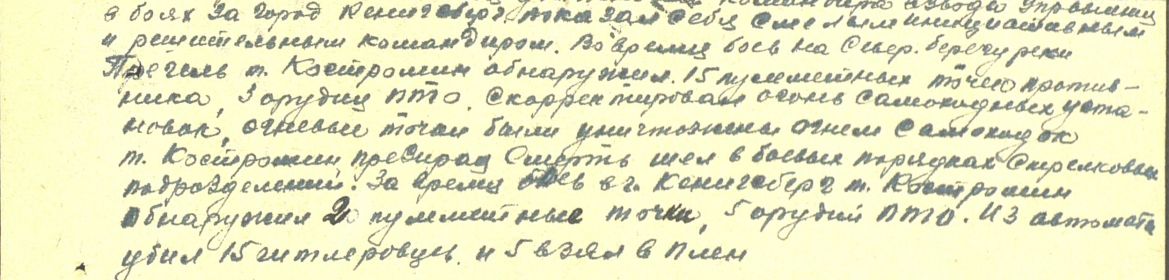 командира взвода управления
в боях за город Кенигсберг показал себя смелым инициативным
и решительным командиром. Во время боев на Север. берегу реки
Прегель т. Костромин обнаружил 15 пулеметных точек против-
ника, 3 орудия ПТО, скорректировал огонь самоходных уста-
новок, огневые точки были уничтожены огнем самоходок
т. Костромин презирая смерть шел в боевых порядках стрелковых
подразделений. За время боев в г. Кенигсберг т. Костромин
обнаружил 2 пулеметные точки, 5 орудий ПТО. Из автомата
убил 15 гитлеровцев и 5 взял в плен